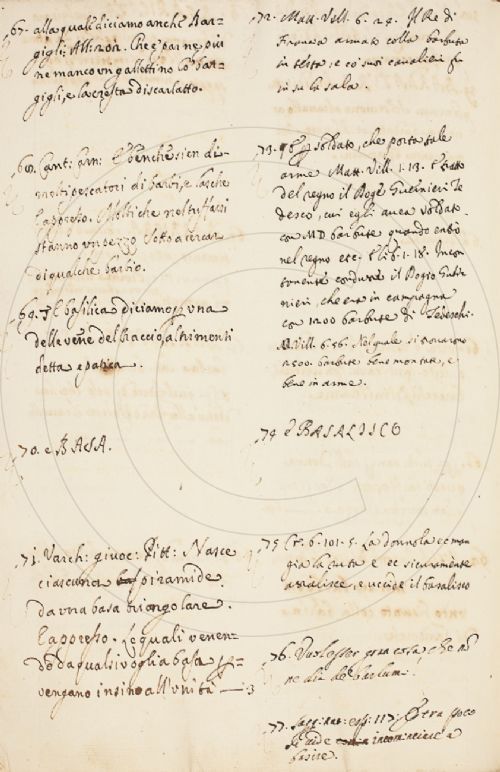 67. alla quali diciamo anche Bar=
gigli. All: 201. Che e' par ne piu
ne manco un gallettino Co' bar=
gigli, e la cresta di scarlatto.
68. Cant: Carn: E benche sien di=
molti pescatori di barbi, e lasche
E appresso. Molti che nel tuffarsi
stanno un pezzo Sotto a cercar
di qualche barbio.
69. E basilica diciamo una
delle vene del braccio altrimenti
detta epatica.
70. e BASA.
71. Varch: giuoc: Pitt: Nasce
ciascuna piramide
da una basa triangolare.
E appresso. Le quali venen=
do da qual si voglia basa
vengano insino all'unità
72. Matt. Vill. 6. 29. Il Re di
Francia armato colla barbuta
in testa, e co' suoi cavalieri fu
in su la sala.
73. soldato, che porta tale
arme Matt. Vill. 1. 13. tratto
del regno il Doge Guernieri Te
desco, cui egli avea soldato
con MD barbute quando entrò
nel regno etc. E li 6. 1. 18. Incon
tanente condusse il Dogio Guer
nieri, che era in campagna
con 1200 barbute di Tedeschi.
M. Vill. 6. 56. Nel quale si trovarono
2500. barbute bene montate, e
bene in arme.
74 è BASALISCO
75 Cr. 6. 101. 5. La donnola ec man
gia la ruta e ec sicuramente
assalisce, e uccide il basalisco
76. Vuol esser gran cosa, che no
ne dia de' barlumi.
77. Sagg: nat: esp: 117: Et tra poco
si vide incominciare a
basire.